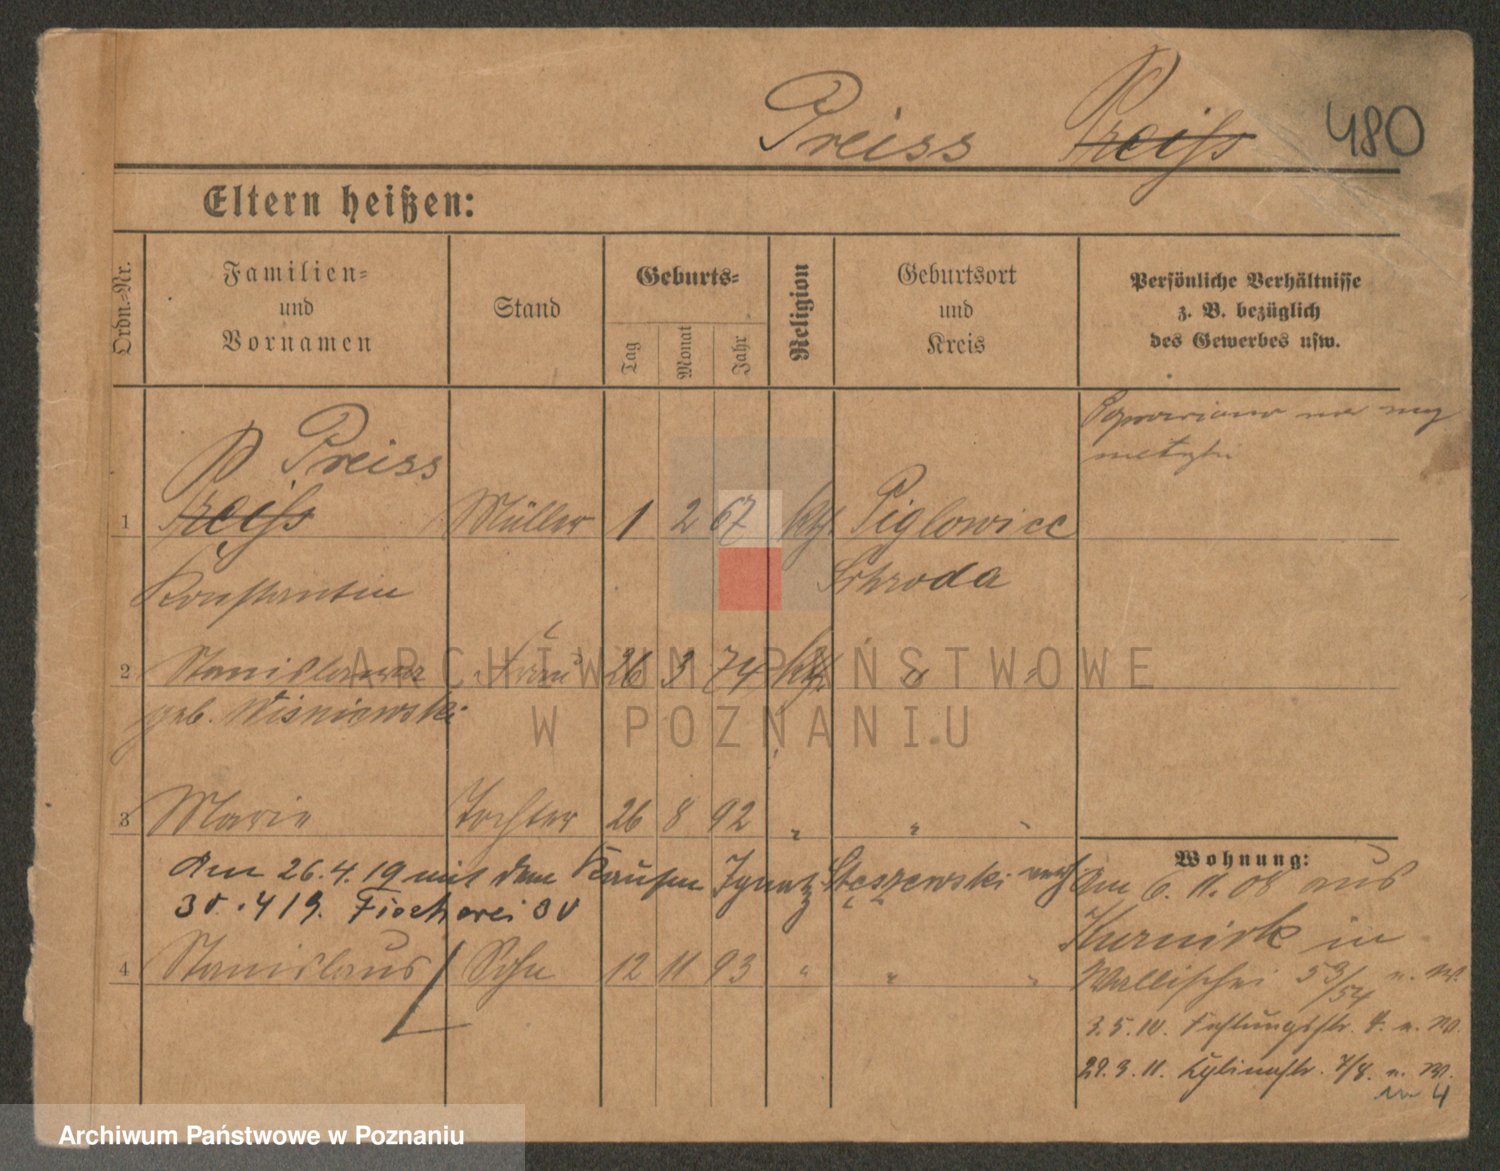 Preiss Preiß 480
Eltern heißen:
Ordn.-Nr.
Familien-
und
Vornamen
Stand
Geburts-
Tag
Monat
Jahr
Religion
Geburtsort
und
Kreis
Persönliche Verhältnisse
z. B. bezüglich
des Gewerbes usw.
Poprawiono na
metryki
Preiss
1 Preiß Müller 1 2 67 kth. Piglowice
Konstantin Schroda
2 Stanislawa Frau 26 3 74 kth. " "
geb. Wisniewski
3 Marie Tochter 26 8 92 " " "
Am 26.4.19 mit dem Kaufm Ignatz Stęszewski nach
30.4 19. Fischerei 30
4 Stanislaus Sohn 12 11 93 " " "
Wohnung:
Am 6.11.08 aus
Kurnik in
Wallischei 53/54 u. W.
3.5.10. Festungsstr. u. W.
29.3.11. 7/8. u. W.
4
ARCHIWUM PAŃSTWOWE
W POZNANIU
Archiwum Państwowe w Poznaniu